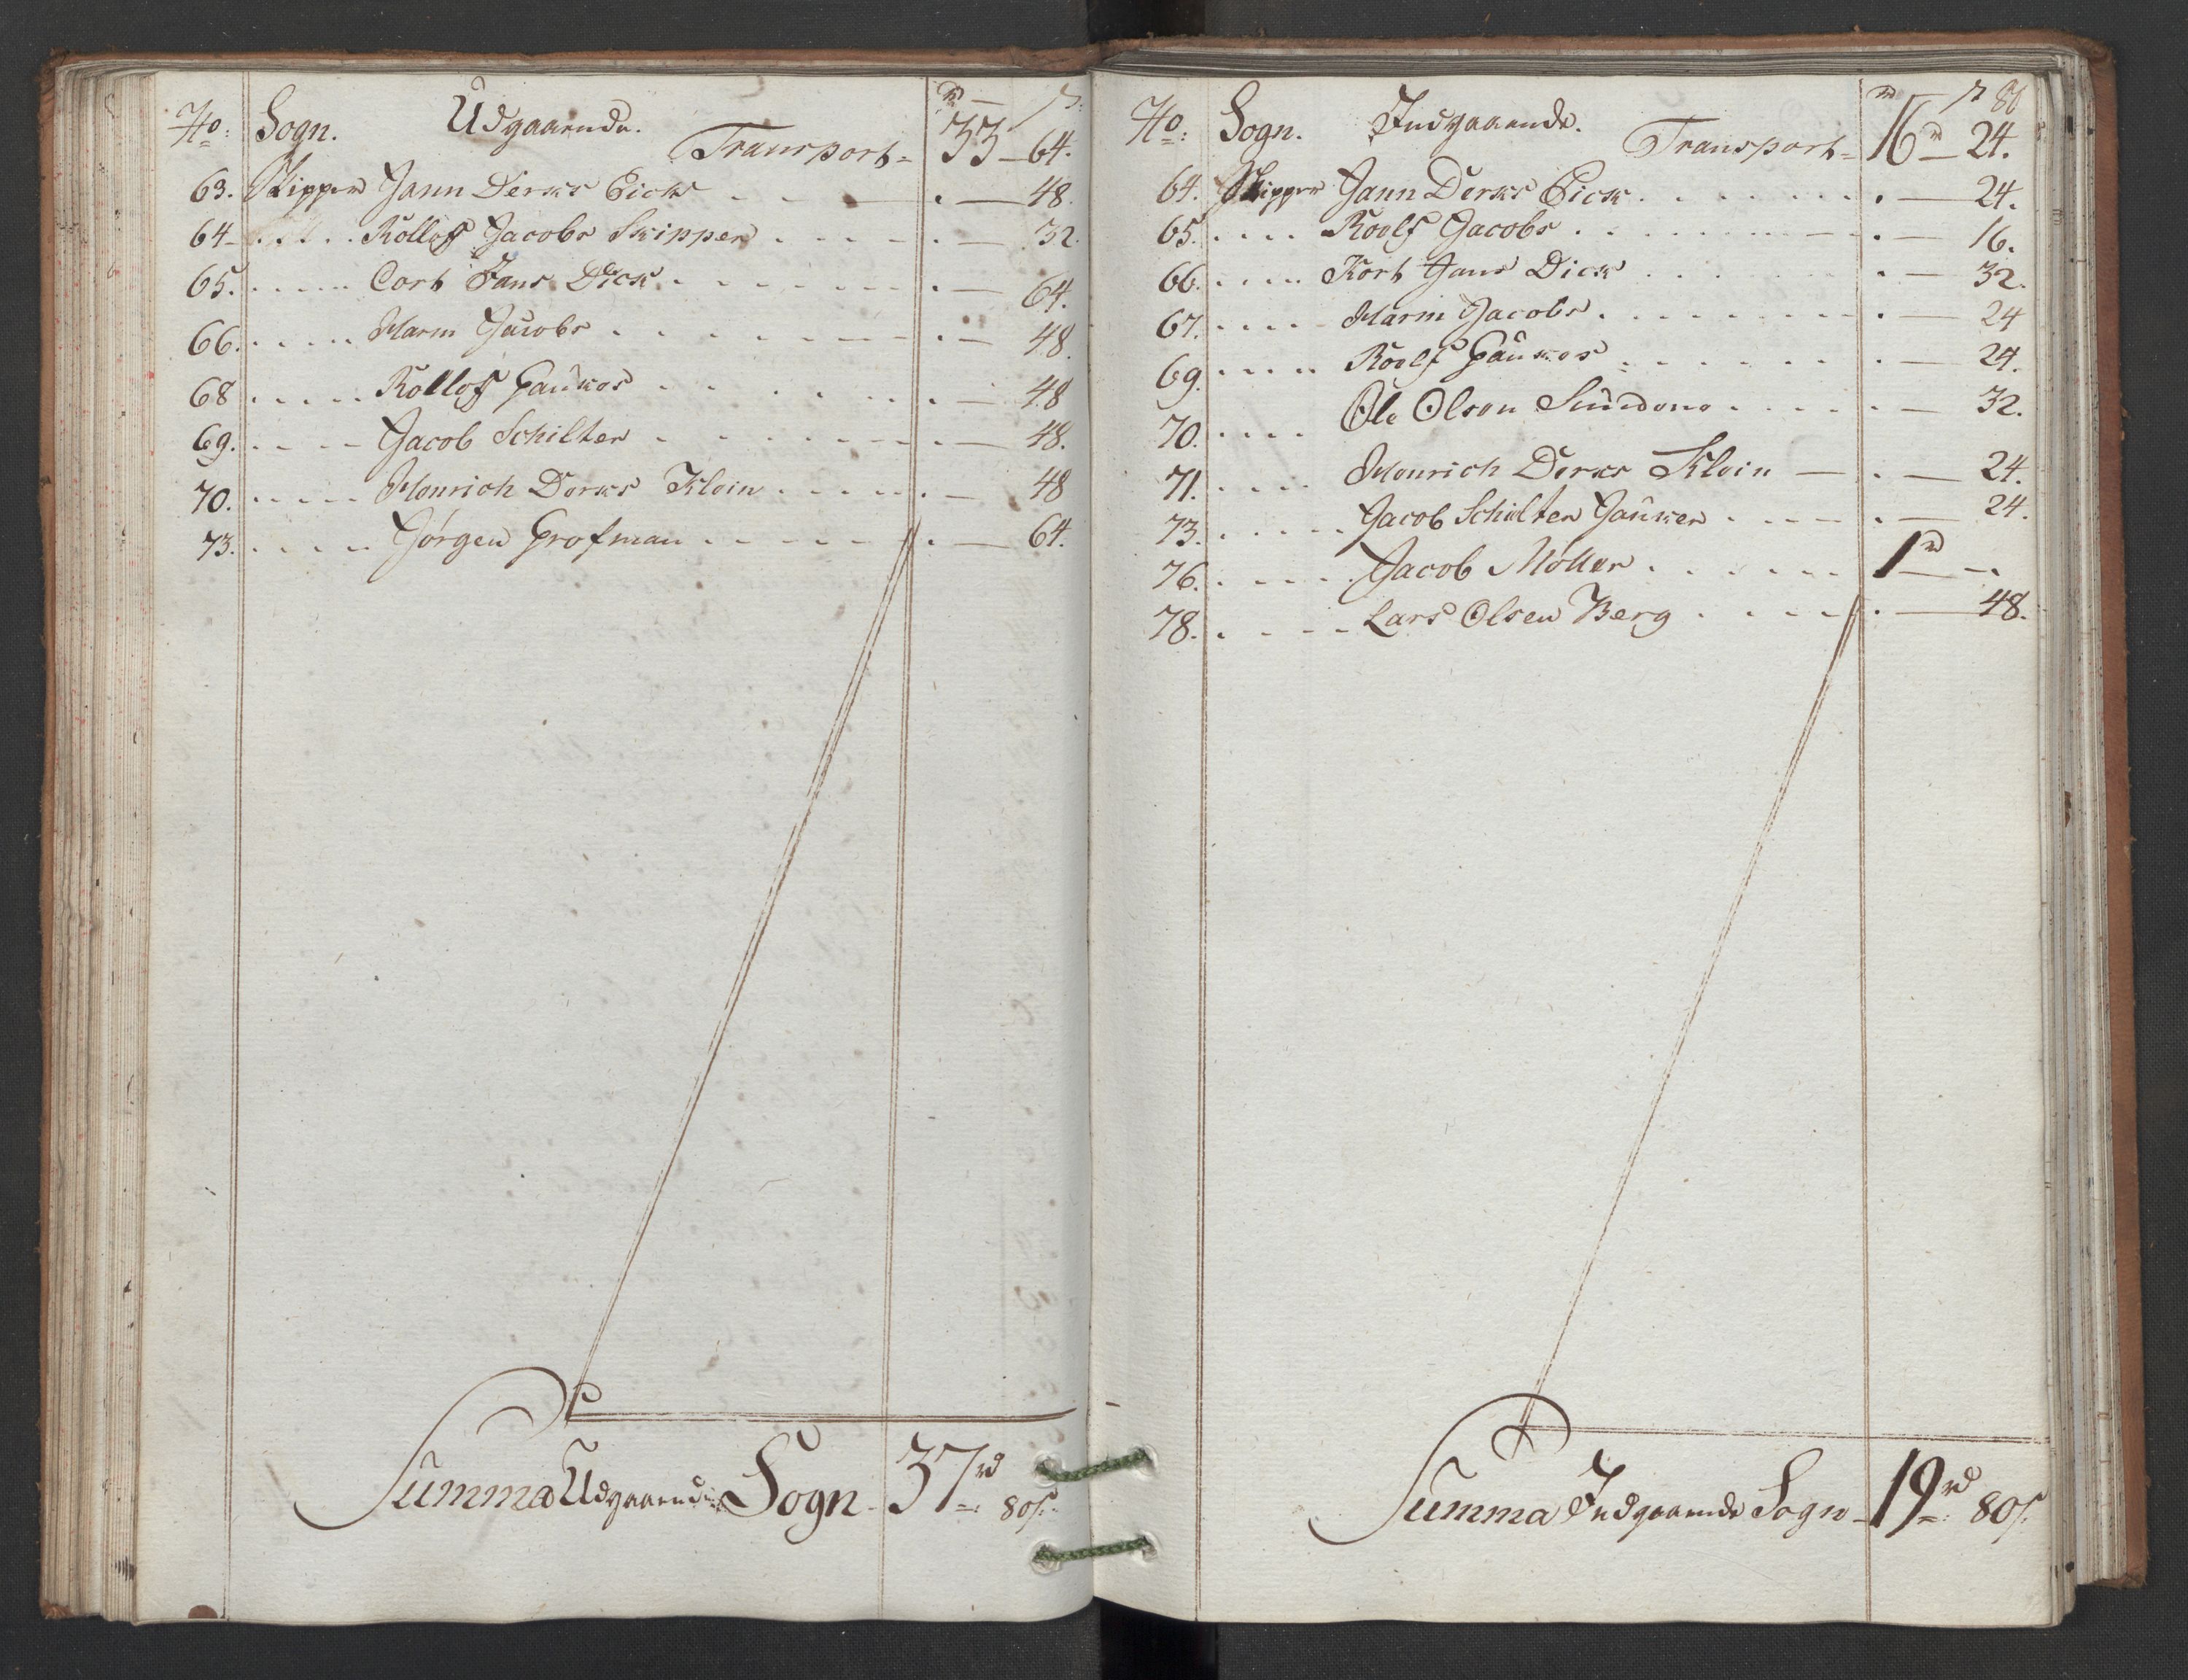 No: Sogn. Udgaaende. rd s:
Transport = 33 – 64.
63. Skipper Jann Derks Eick . — 48.
64 – . . . . Rollof Jacobs Skipper . — 32.
65. . . . . Cort Jans Dick . — 64.
66. . . . . Harm Jacobs . — 48.
68 . . . . Rollof Gaukes . — 48
69. . . . Jacob Schilter . — 48.
70. . . . . Henrich Derks Klein . — 48
73. . . . . Görgen Grofman . — 64.
Summa Udgaaende Sogn – 37 rd 80 s.
86
No: Sogn. Indgaaende. rd s
Transport = 16 rd – 24.
64. Skipper Jann Derks Eick . — 24.
65. . . . . Roolf Jacobs . — 16.
66. . . . . Kort Jans Dick . — 32.
67. . . . . Harm Jacobs . — 24
69. . . . . Roolf Gaukes . — 24.
70. . . . . Ole Olsen . — 32.
71. . . . . Henrich Derks Klein — . — 24.
73. . . . . Jacob Schilter Gauker . — 24.
76. . . . . Jacob Möller 1 rd — .
78. . . . . Lars Olsen Berg . — 48.
Summa Indgaaende Sogn – 19 rd 80 s.